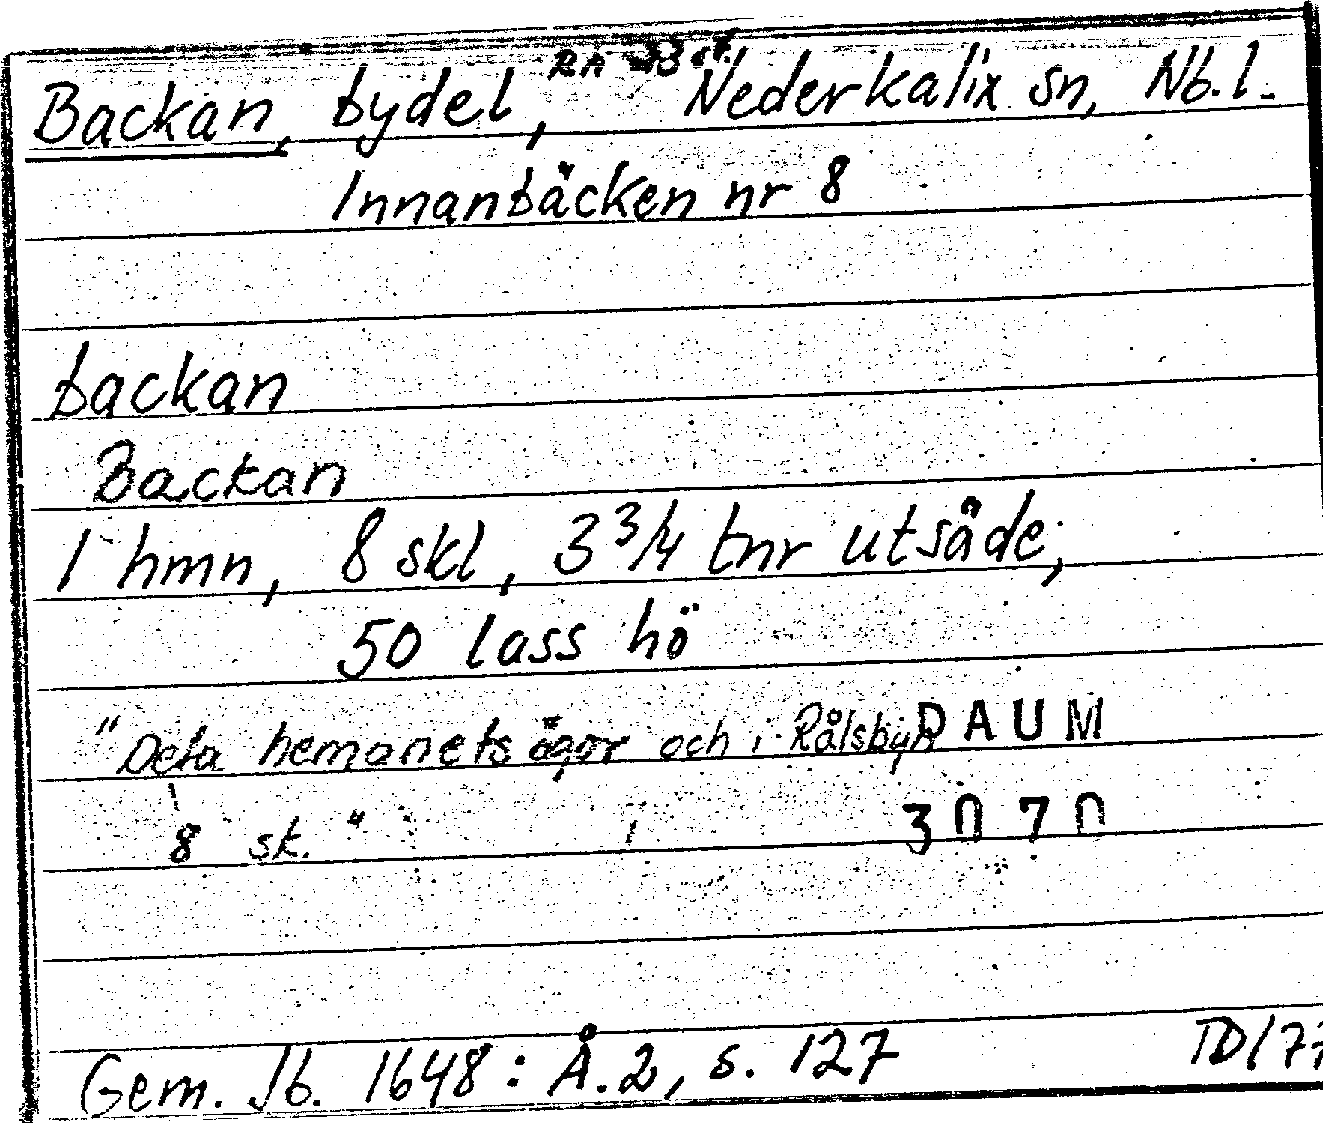 Backan, bydel, Nederkalix sn, Nb.l.
Innanbäcken nr 8
backan
Backan
1 hmn, 8 skl, 3 3/4 tnr utsäde;
50 lass hö
"Deta hemanets ägor och i Rålsbyn
8 sk."
DAUM
3070
Gem. Jb. 1648: Å.2, s. 127
TD/77